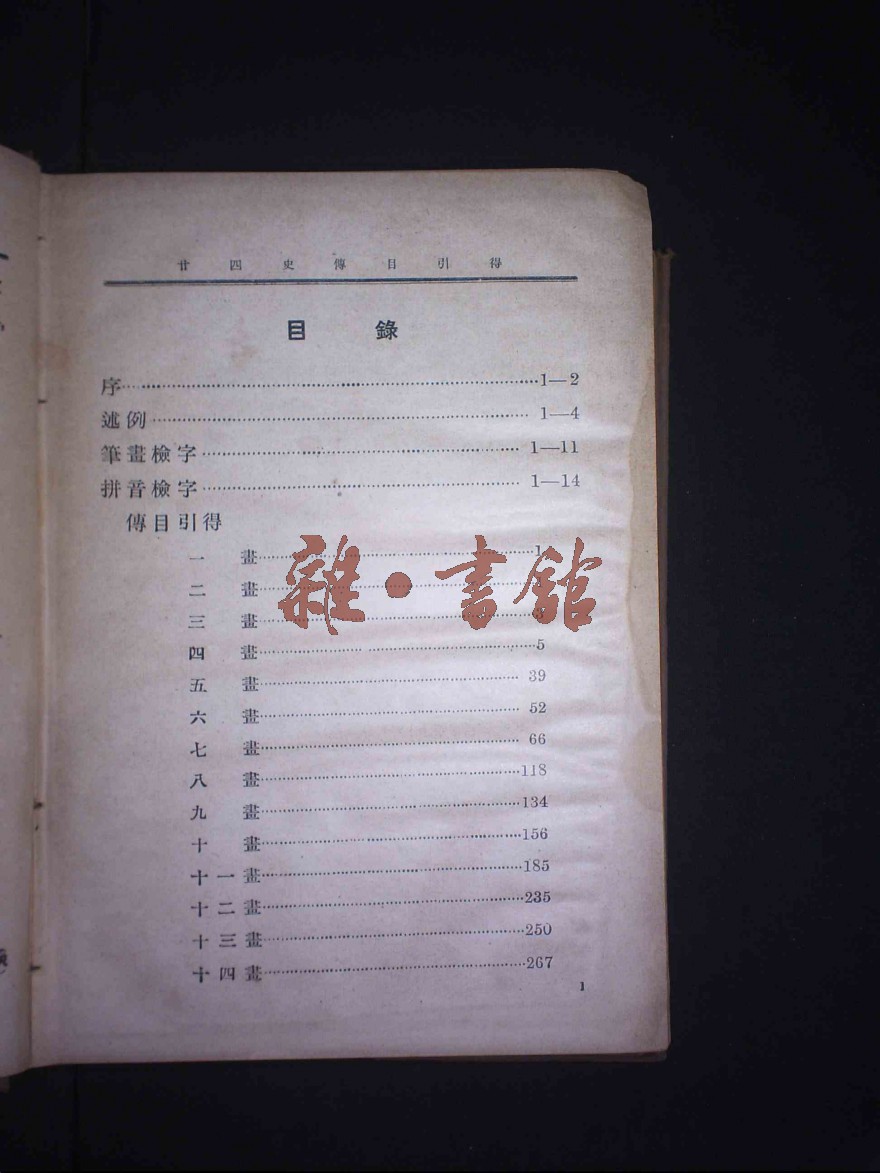 廿四史傳目引得
目錄
序……1—2
述例……1—4
筆畫檢字……1—11
拼音檢字……1—14
傳目引得
一畫……1
二畫……
三畫……3
四畫……5
五畫……39
六畫……52
七畫……66
八畫……118
九畫……134
十畫……156
十一畫……185
十二畫……235
十三畫……250
十四畫……267
1
雜·書館